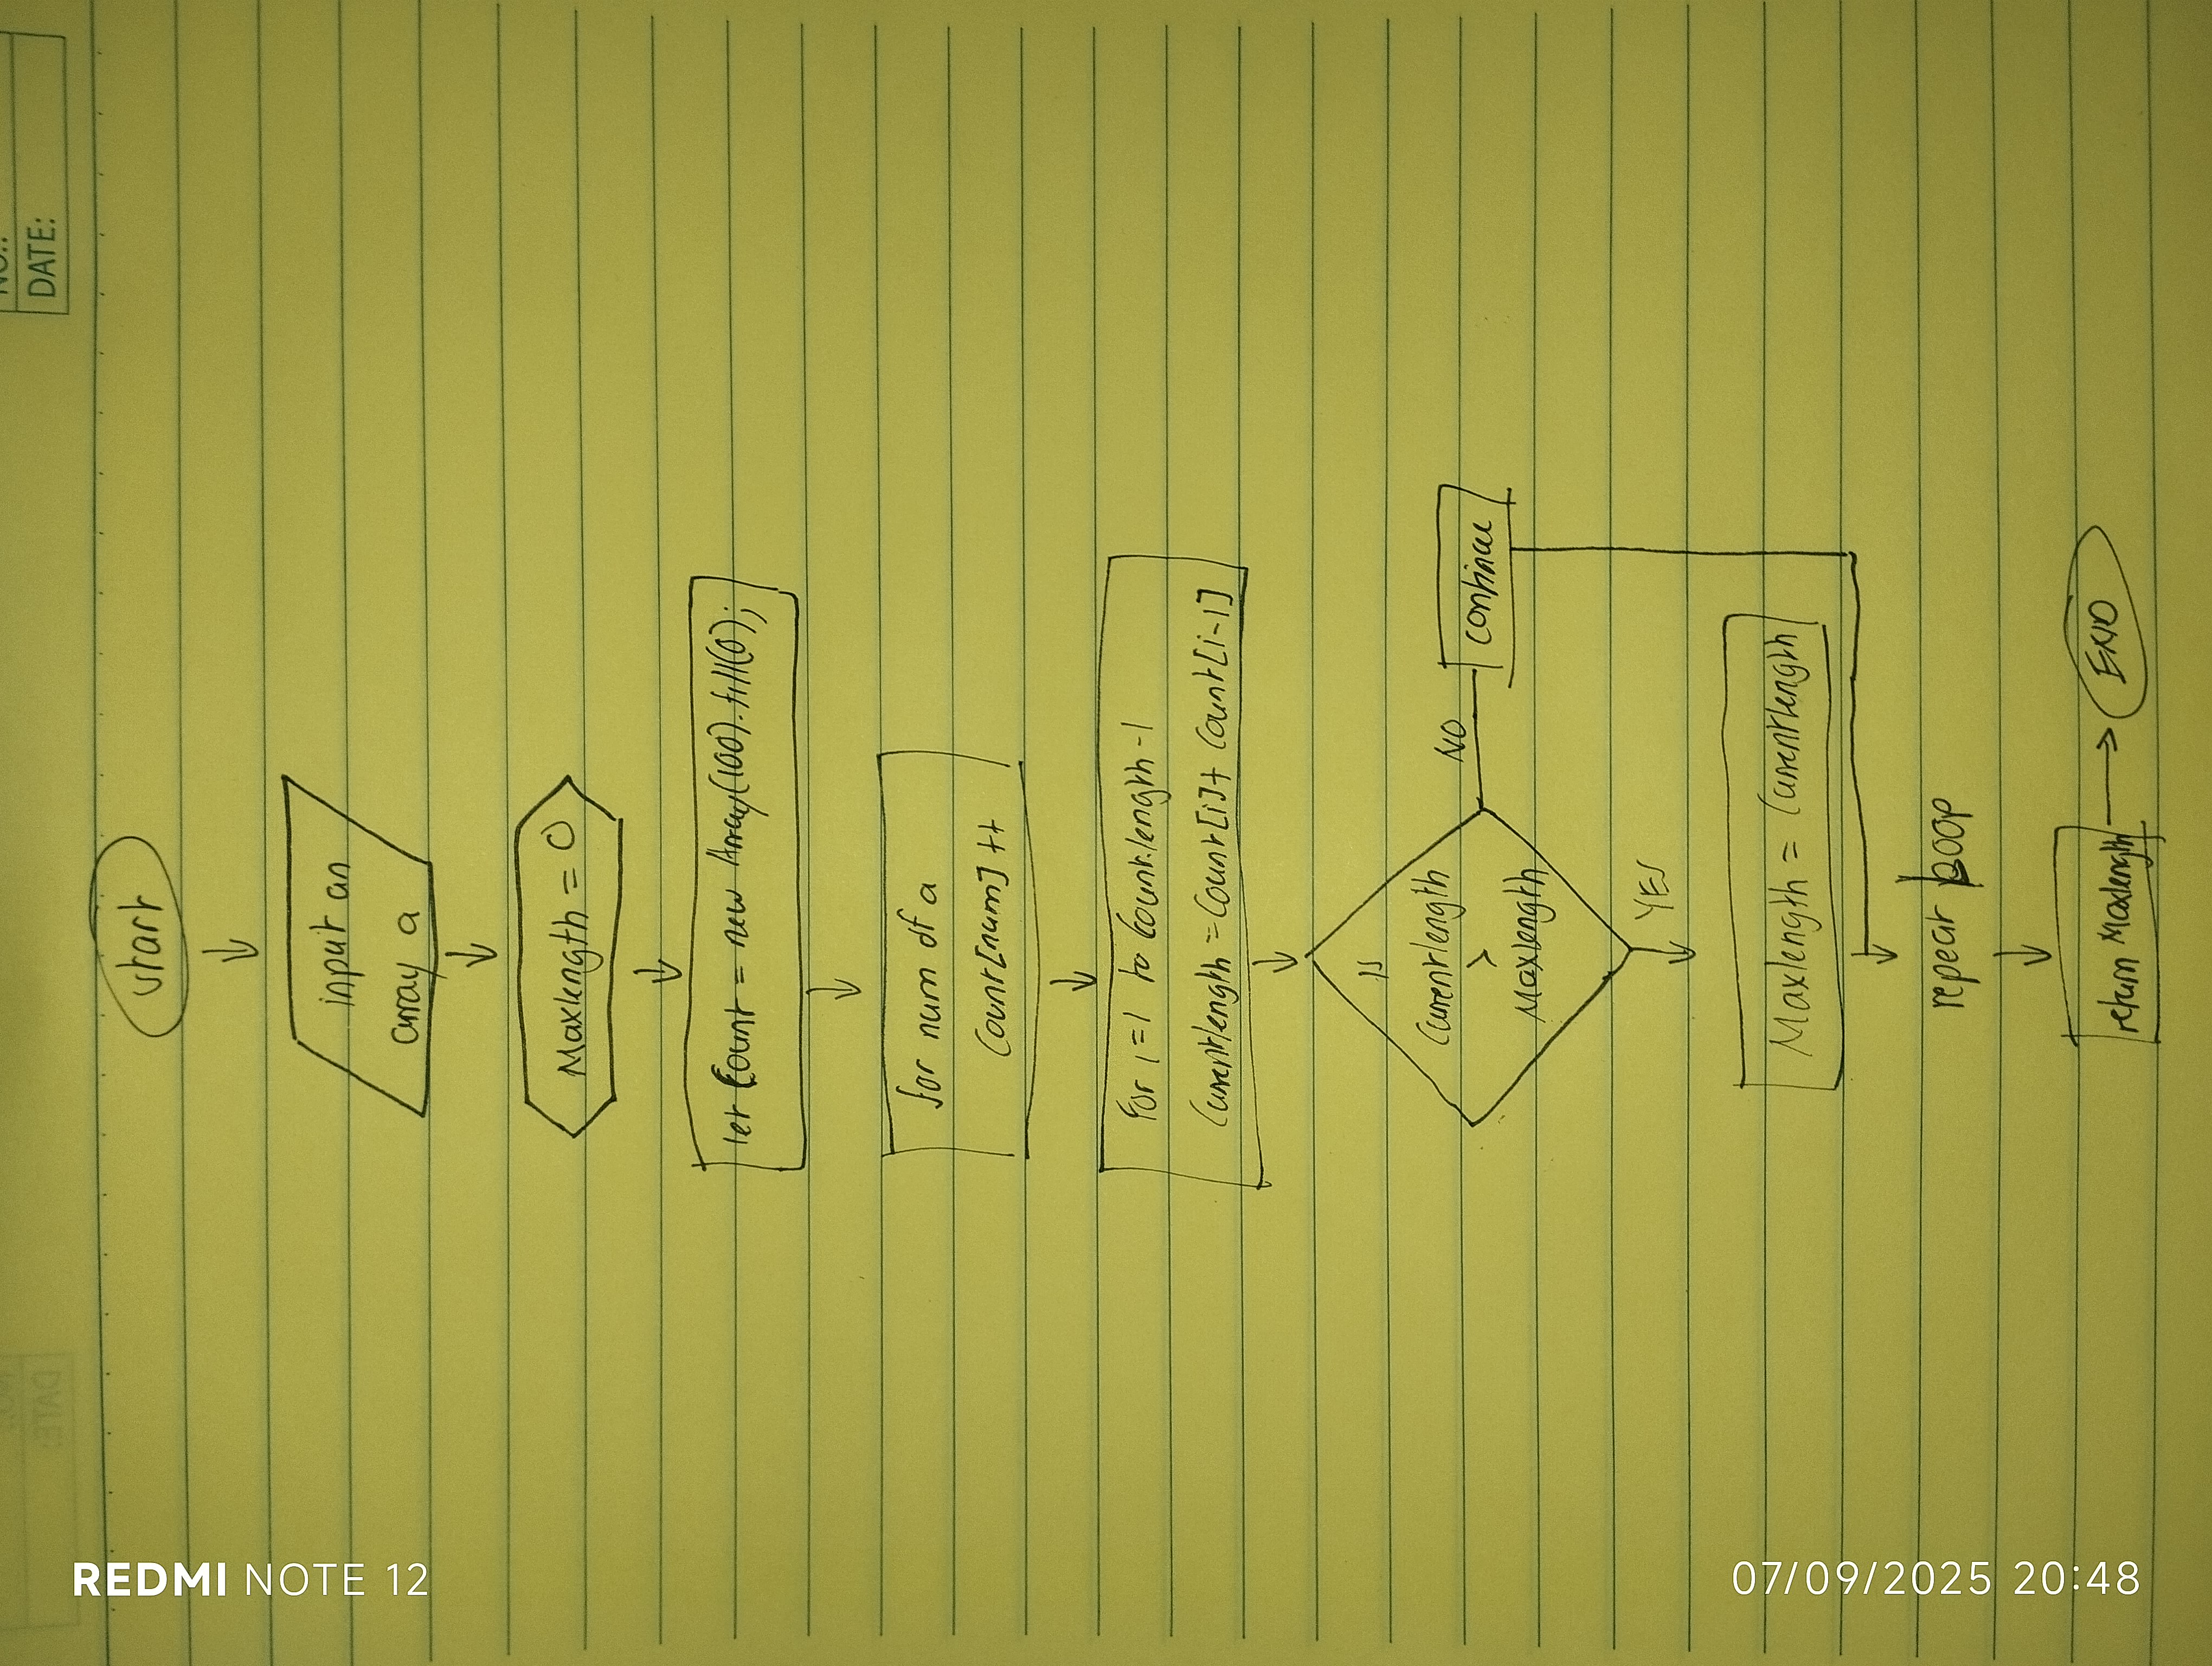 NO.:
DATE:
start
input an
array a
Maxlength = 0
let Count = new Array(100).fill(0);
for num of a
Count[num] ++
For i = 1 to Count.length - 1
Currentlength = Count[i] + Count[i-1]
is
Currentlength
>
Maxlength
NO
Continue
YES
Maxlength = Currentlength
repeat loop
return Maxlength
END
REDMI NOTE 12
07/09/2025 20:48